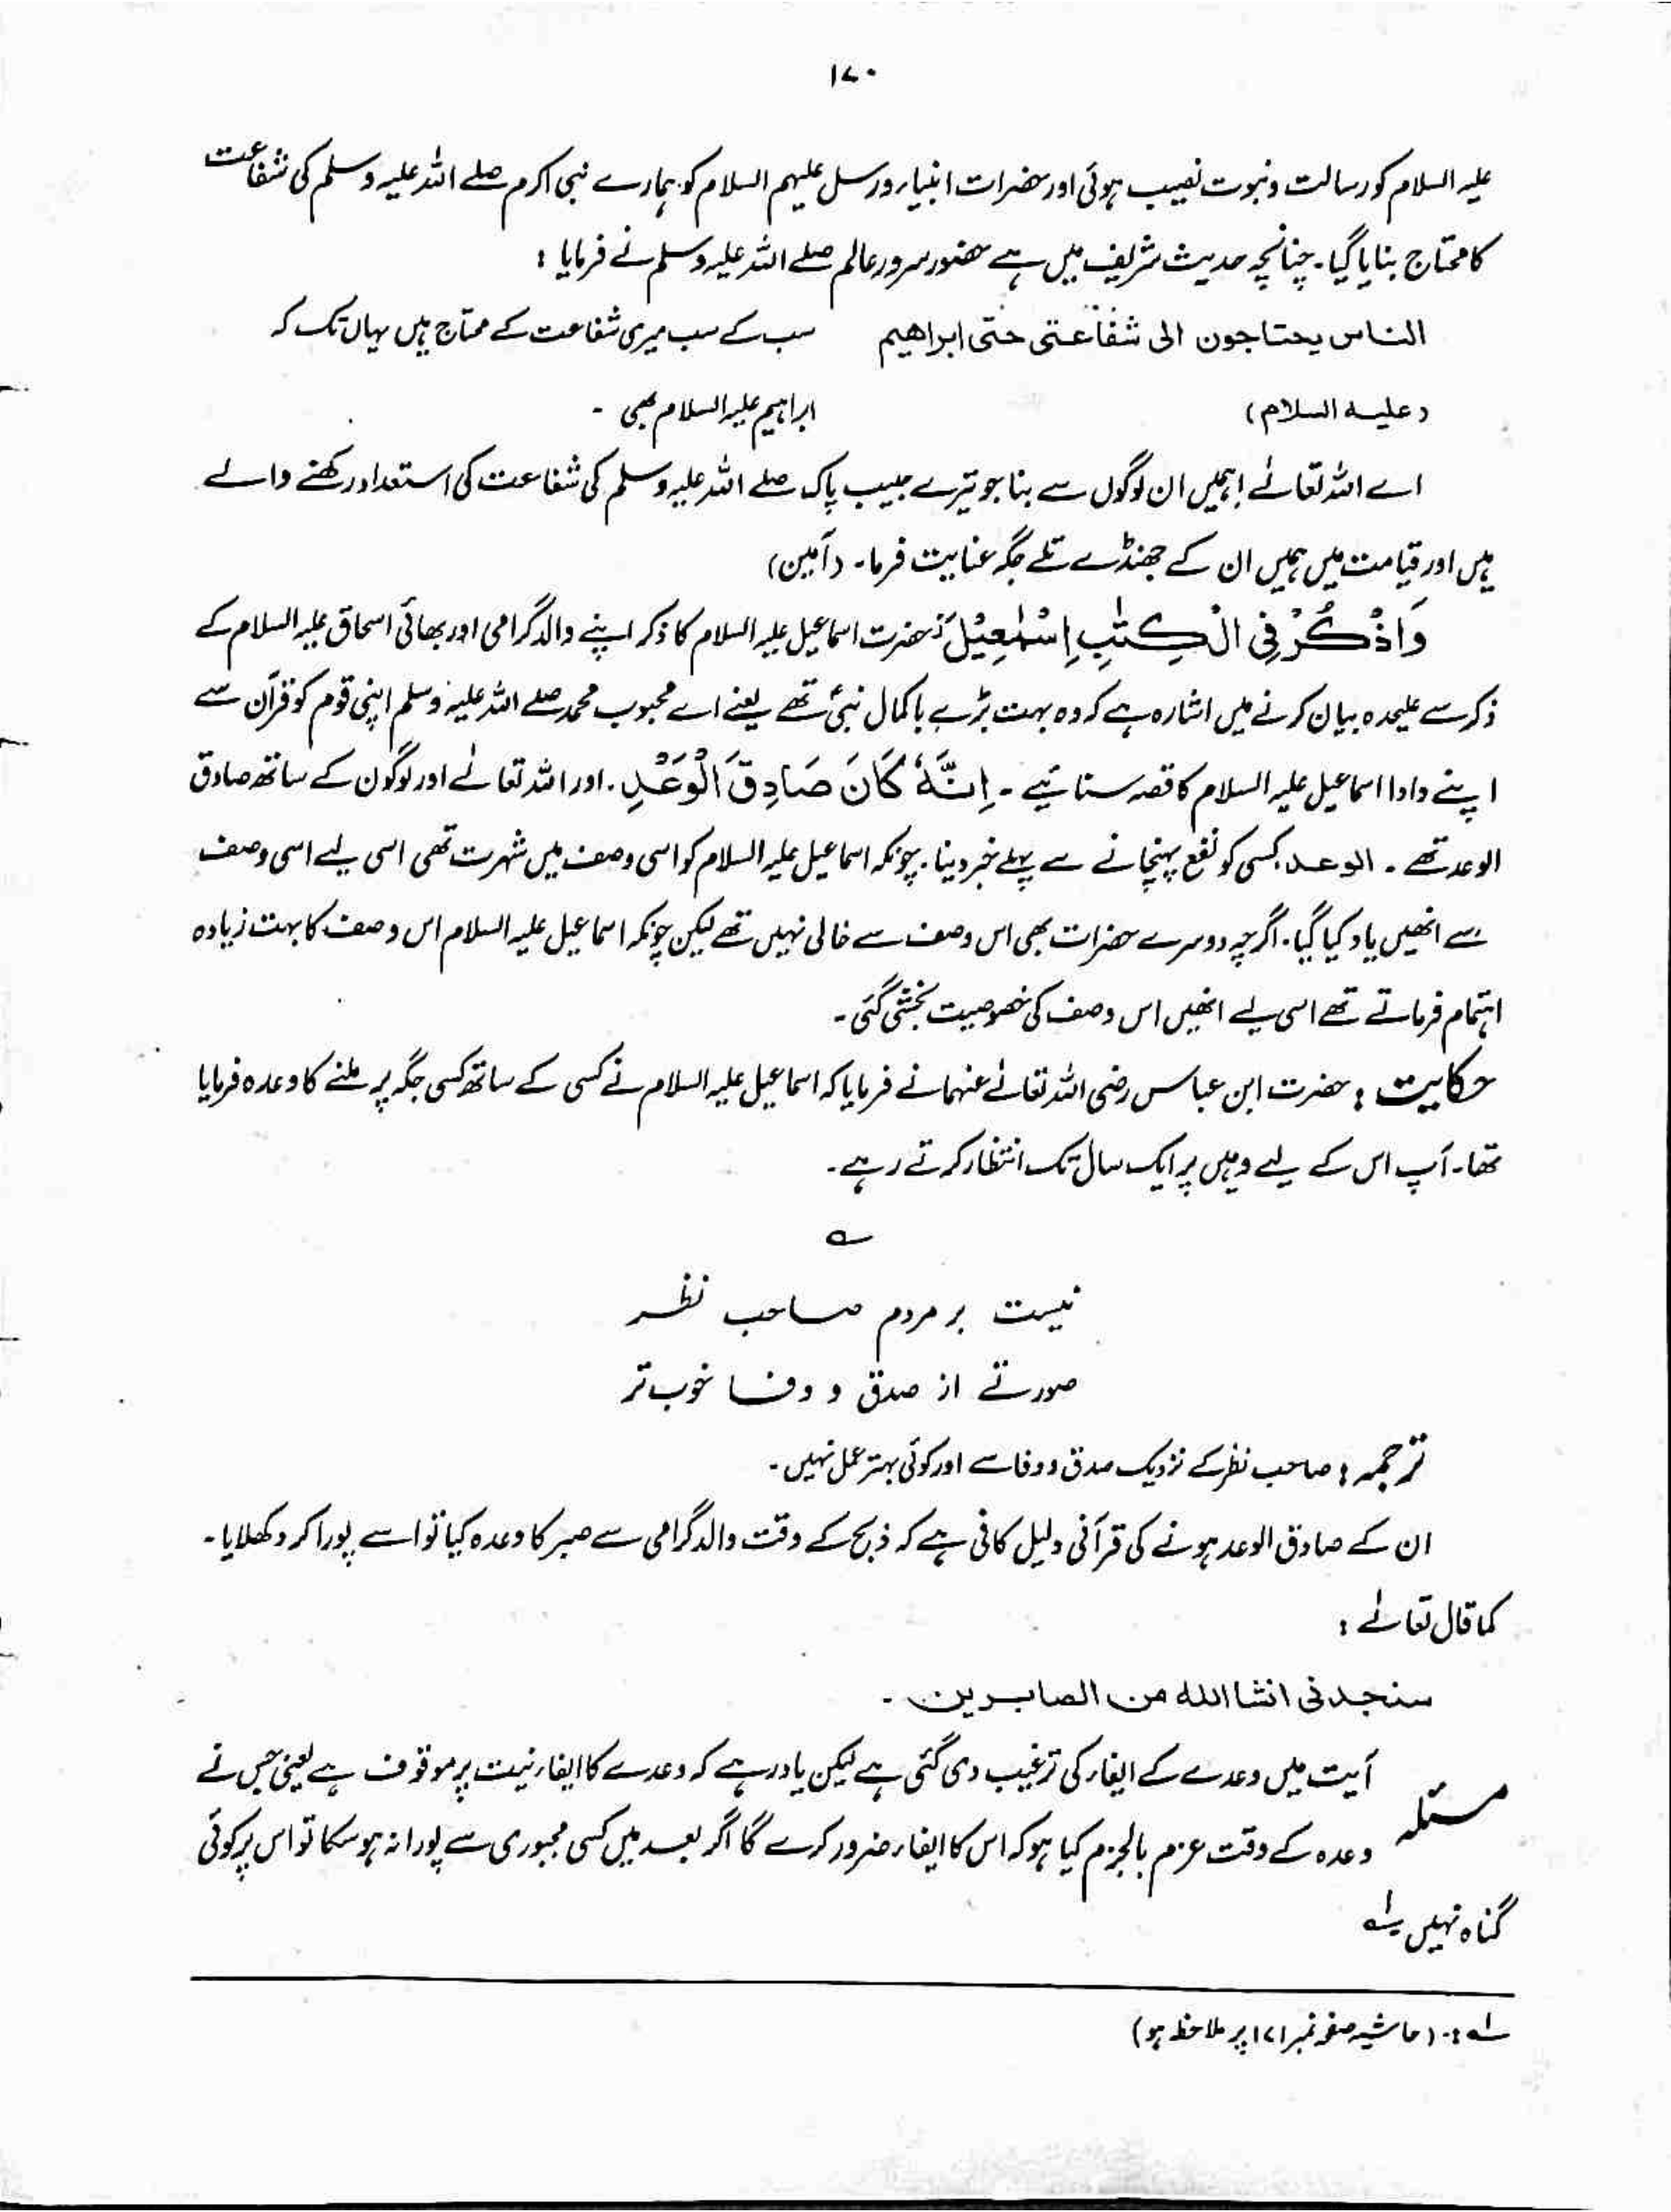 ۱۷۰
علیہ السلام کو رسالت و نبوت نصیب ہوئی اور حضرات انبیاء و رسل علیہم السلام کو ہمارے نبی اکرم صلے اللہ علیہ وسلم کی شفاعت
کا محتاج بنایا گیا۔ چنانچہ حدیث شریف میں ہے حضور سرور عالم صلے اللہ علیہ وسلم نے فرمایا :
الناس یحتاجون الی شفاعتی حتی ابراھیم سب کے سب میری شفاعت کے محتاج ہیں یہاں تک کہ
(علیہ السلام) ابراہیم علیہ السلام بھی ۔
اے اللہ تعالٰے! ہمیں ان لوگوں سے بنا جو تیرے حبیب پاک صلے اللہ علیہ وسلم کی شفاعت کی استعداد رکھنے والے
ہیں اور قیامت میں ہمیں ان کے جھنڈے تلے جگہ عنایت فرما۔ (آمین)
وَاذْكُرْ فِی الْكِتٰبِ اِسْمٰعِیْلَ : حضرت اسماعیل علیہ السلام کا ذکر اپنے والد گرامی اور بھائی اسحاق علیہ السلام کے
ذکر سے علیحدہ بیان کرنے میں اشارہ ہے کہ وہ بہت بڑے باکمال نبی تھے یعنے اے محبوب محمد صلے اللہ علیہ وسلم اپنی قوم کو قرآن سے
اپنے دادا اسماعیل علیہ السلام کا قصہ سنائیے ۔ اِنَّهٗ كَانَ صَادِقَ الْوَعْدِ ۔ اور اللہ تعالٰے اور لوگوں کے ساتھ صادق
الوعد تھے ۔ الوعد کسی کو نفع پہنچانے سے پہلے خبر دینا۔ چونکہ اسماعیل علیہ السلام کو اسی وصف میں شہرت تھی اسی لیے اسی وصف
سے انھیں یاد کیا گیا۔ اگرچہ دوسرے حضرات بھی اس وصف سے خالی نہیں تھے لیکن چونکہ اسماعیل علیہ السلام اس وصف کا بہت زیادہ
اہتمام فرماتے تھے اسی لیے انھیں اس وصف کی خصوصیت بخشی گئی ۔
حکایت : حضرت ابن عباس رضی اللہ تعالٰے عنہما نے فرمایا کہ اسماعیل علیہ السلام نے کسی کے ساتھ کسی جگہ پر ملنے کا وعدہ فرمایا
تھا۔ آپ اس کے لیے وہیں پر ایک سال تک انتظار کرتے رہے۔
؎
نیست بر مردم صاحب نظر
صورتے از صدق و وفا خوب تر
ترجمہ : صاحب نظر کے نزدیک صدق و وفا سے اور کوئی بہتر عمل نہیں ۔
ان کے صادق الوعد ہونے کی قرآنی دلیل کافی ہے کہ ذبح کے وقت والد گرامی سے صبر کا وعدہ کیا تو اسے پورا کر دکھلایا ۔
کما قال تعالٰے :
سنجدنی انشا اللہ من الصابرین ۔
آیت میں وعدے کے ایفاء کی ترغیب دی گئی ہے لیکن یاد رہے کہ وعدے کا ایفاء نیت پر موقوف ہے یعنی جس نے
مسئلہ وعدہ کے وقت عزم بالجزم کیا ہو کہ اس کا ایفاء ضرور کرے گا اگر بعد میں کسی مجبوری سے پورا نہ ہو سکا تو اس پر کوئی
گناہ نہیں لہ
لہ :۔ (حاشیہ صفحہ نمبر ۱۷۱ پر ملاحظہ ہو)